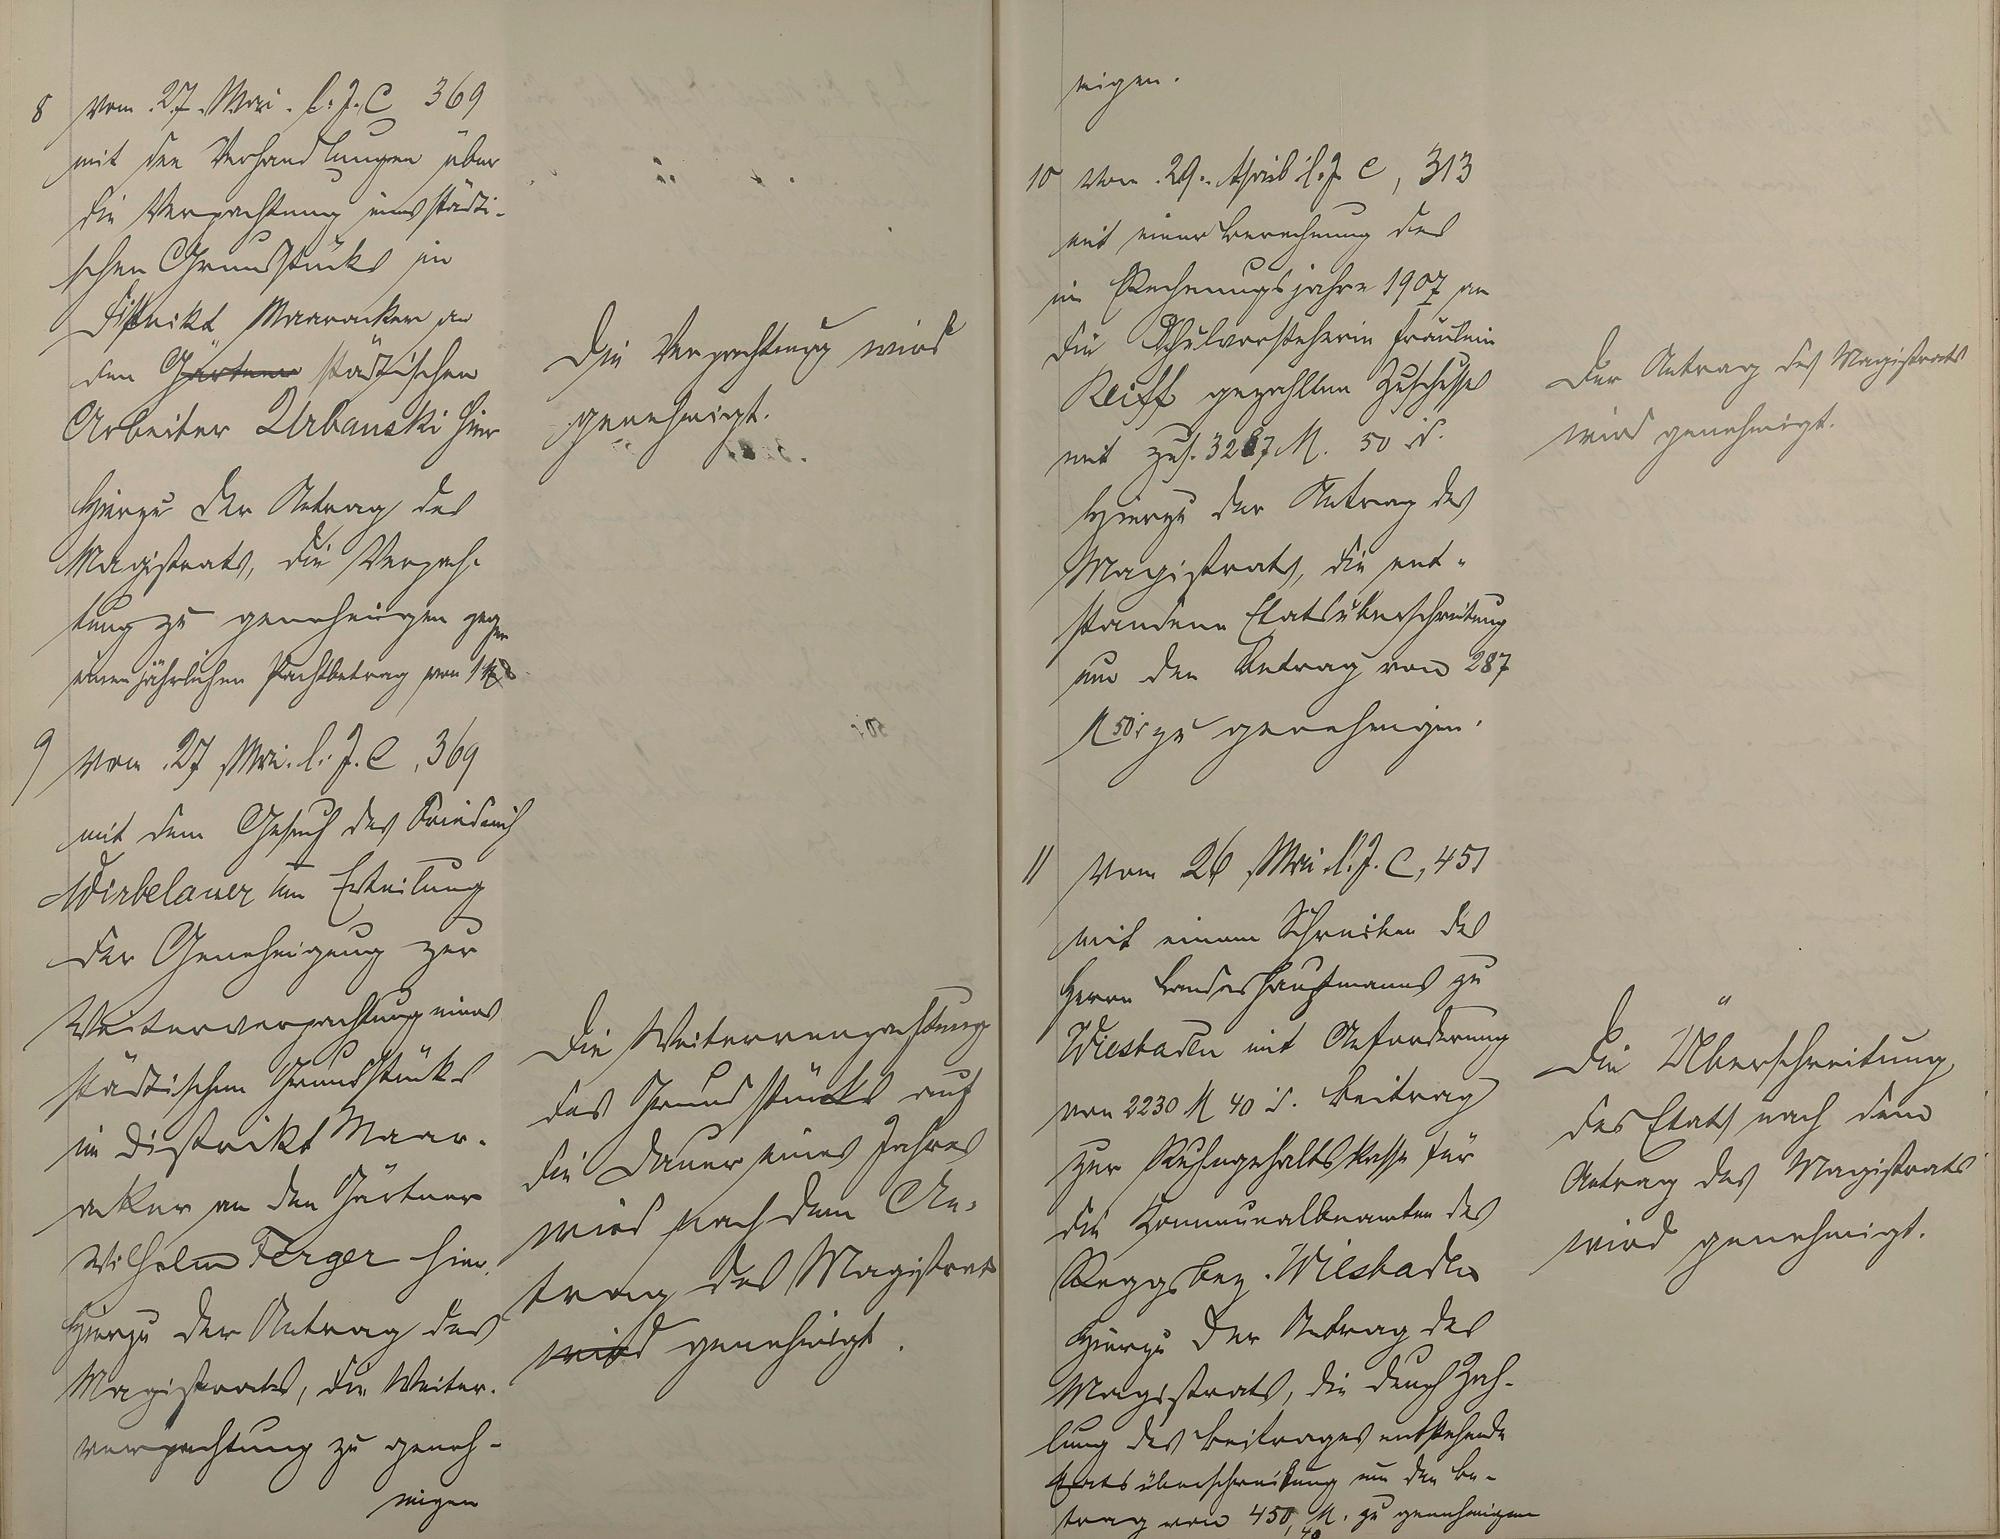 8 vom 27. Mai l. J. C 369
mit den Verhandlungen über
die Verpachtung eines städti-
schen Grundstücks im
Distrikt Maaracker an
den Gärtner städtischen
Arbeiter Urbanski hier
Hierzu der Antrag des
Magistrats, die Verpach-
tung zu genehmigen gegen
einen jährlichen Pachtbetrag von
Die Verpachtung wird
genehmigt.
9 vom 27 Mai l. J. C, 369
mit dem Gesuch des Friedrich
Wirbelauer um Erteilung
der Genehmigung zur
Weiterverpachtung eines
städtischen Grundstücks
im Distrikt Maar-
acker an den Gärtner
Wilhelm Ferger hier.
Hierzu der Antrag des
Magistrats, die Weiter-
verpachtung zu geneh-
migen
Die Weiterverpachtung
des Grundstücks auf
die Dauer eines Jahres
wird nach dem An-
trag des Magistrats
wird genehmigt.
migen.
10 vom 29. April l. J. C, 313
mit einer Berechnung des
im Rechnungsjahre 1907 an
die Schulvorsteherin Fräulein
Reiff gezahlten Zuschusses
mit zus. 3287 M. 50 d.
Hierzu der Antrag des
Magistrats, die ent-
standene Etatsüberschreitung
um den Betrag von 287
M 50 d zu genehmigen.
Der Antrag des Magistrats
wird genehmigt.
11 vom 26 Mai l. J. C, 451
mit einem Schreiben des
Herrn Landeshauptmanns zu
Wiesbaden mit Anforderung
von 2230 M 40 d. Beitrag
zur Ruhegehaltskasse für
die Kommunalbeamten des
Reggsbez. Wiesbaden
Hierzu der Antrag des
Magistrats, die durch Zah-
lung des Beitrages entstehende
Etatsüberschreitung um den Be-
trag von 450, 40 M. zu genehmigen
Die Überschreitung
des Etats nach dem
Antrag des Magistrats
wird genehmigt.